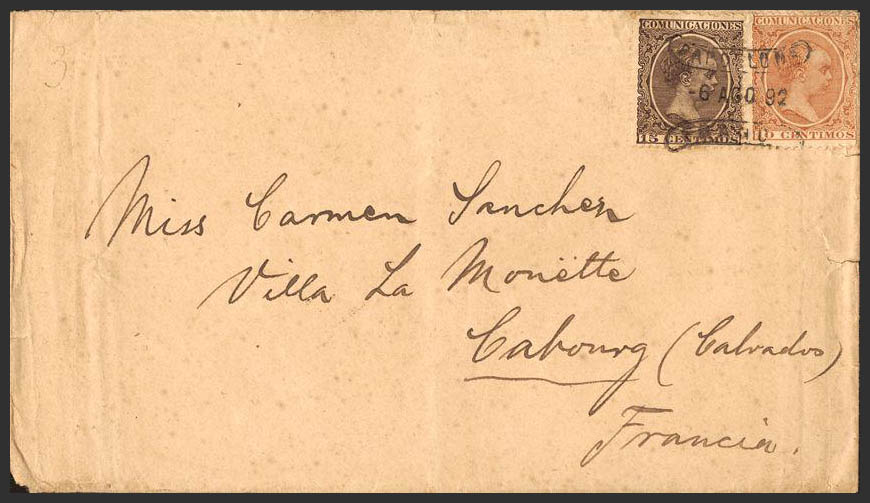 3
COMUNICACIONES COMUNICACIONES
BARCELONA
-6 AGO 92
15 CENTIMOS 10 CENTIMOS
Miss Carmen Sanchez
Villa La Mouëtte
Cabourg (Calvados)
Francia.